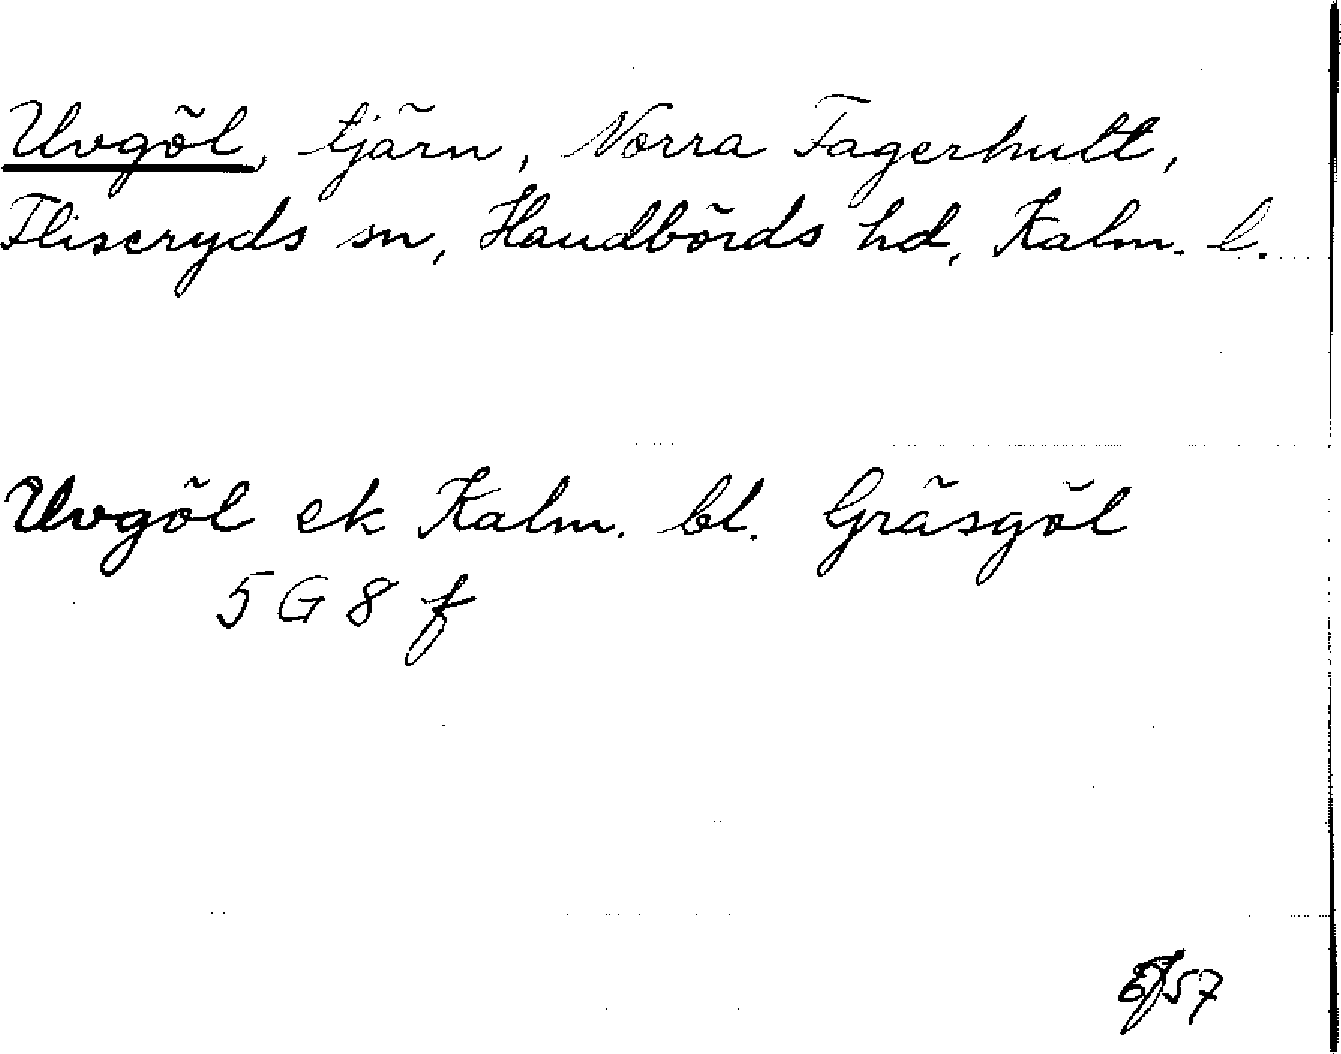 Uvgöl, tjärn, Norra Fagerhult,
Fliseryds sn, Handbörds hd, Kalm. l.
Uvgöl ek Kalm. bl. Gräsgöl
5 G 8 f
57